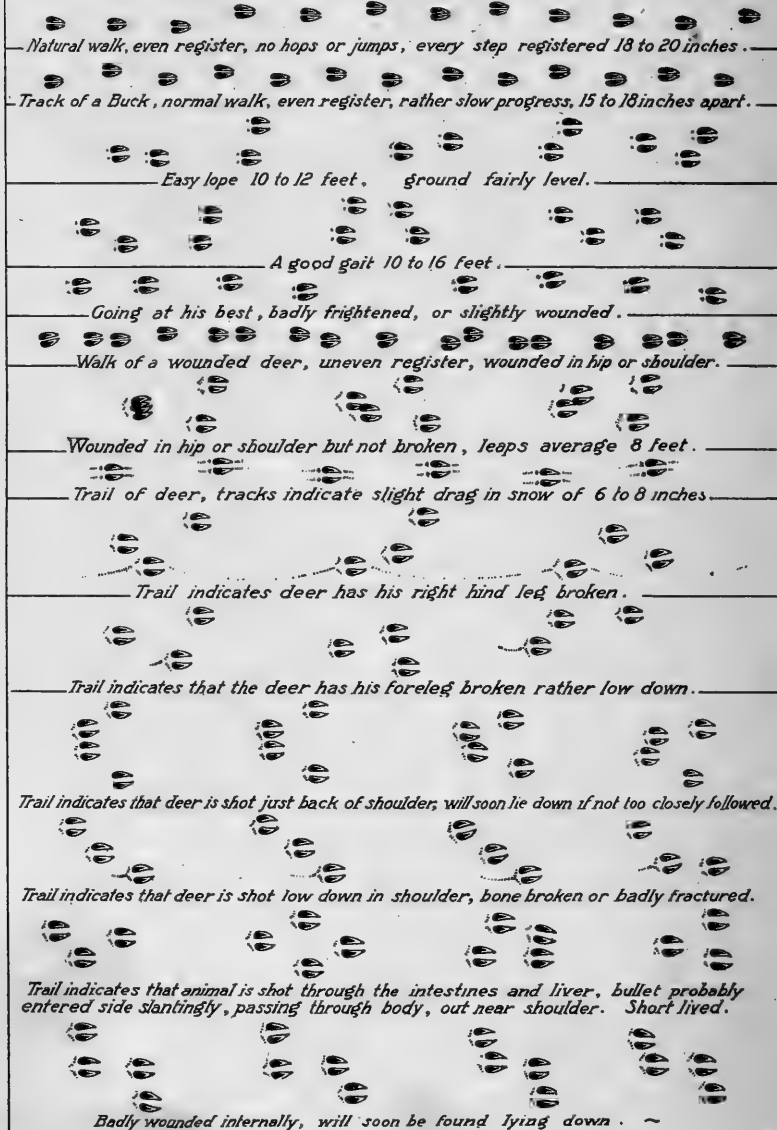 Natural walk, even register, no hops or jumps, every step registered 18 to 20 inches.
Track of a Buck, normal walk, even register, rather slow progress, 15 to 18 inches apart.
Easy lope 10 to 12 feet, ground fairly level.
A good gait 10 to 16 feet.
Going at his best, badly frightened, or slightly wounded.
Walk of a wounded deer, uneven register, wounded in hip or shoulder.
Wounded in hip or shoulder but not broken, leaps average 8 feet.
Trail of deer, tracks indicate slight drag in snow of 6 to 8 inches
Trail indicates deer has his right hind leg broken.
Trail indicates that the deer has his foreleg broken rather low down.
Trail indicates that deer is shot just back of shoulder, will soon lie down if not too closely followed.
Trail indicates that deer is shot low down in shoulder, bone broken or badly fractured.
Trail indicates that animal is shot through the intestines and liver, bullet probably
entered side slantingly, passing through body, out near shoulder. Short lived.
Badly wounded internally, will soon be found lying down. ~